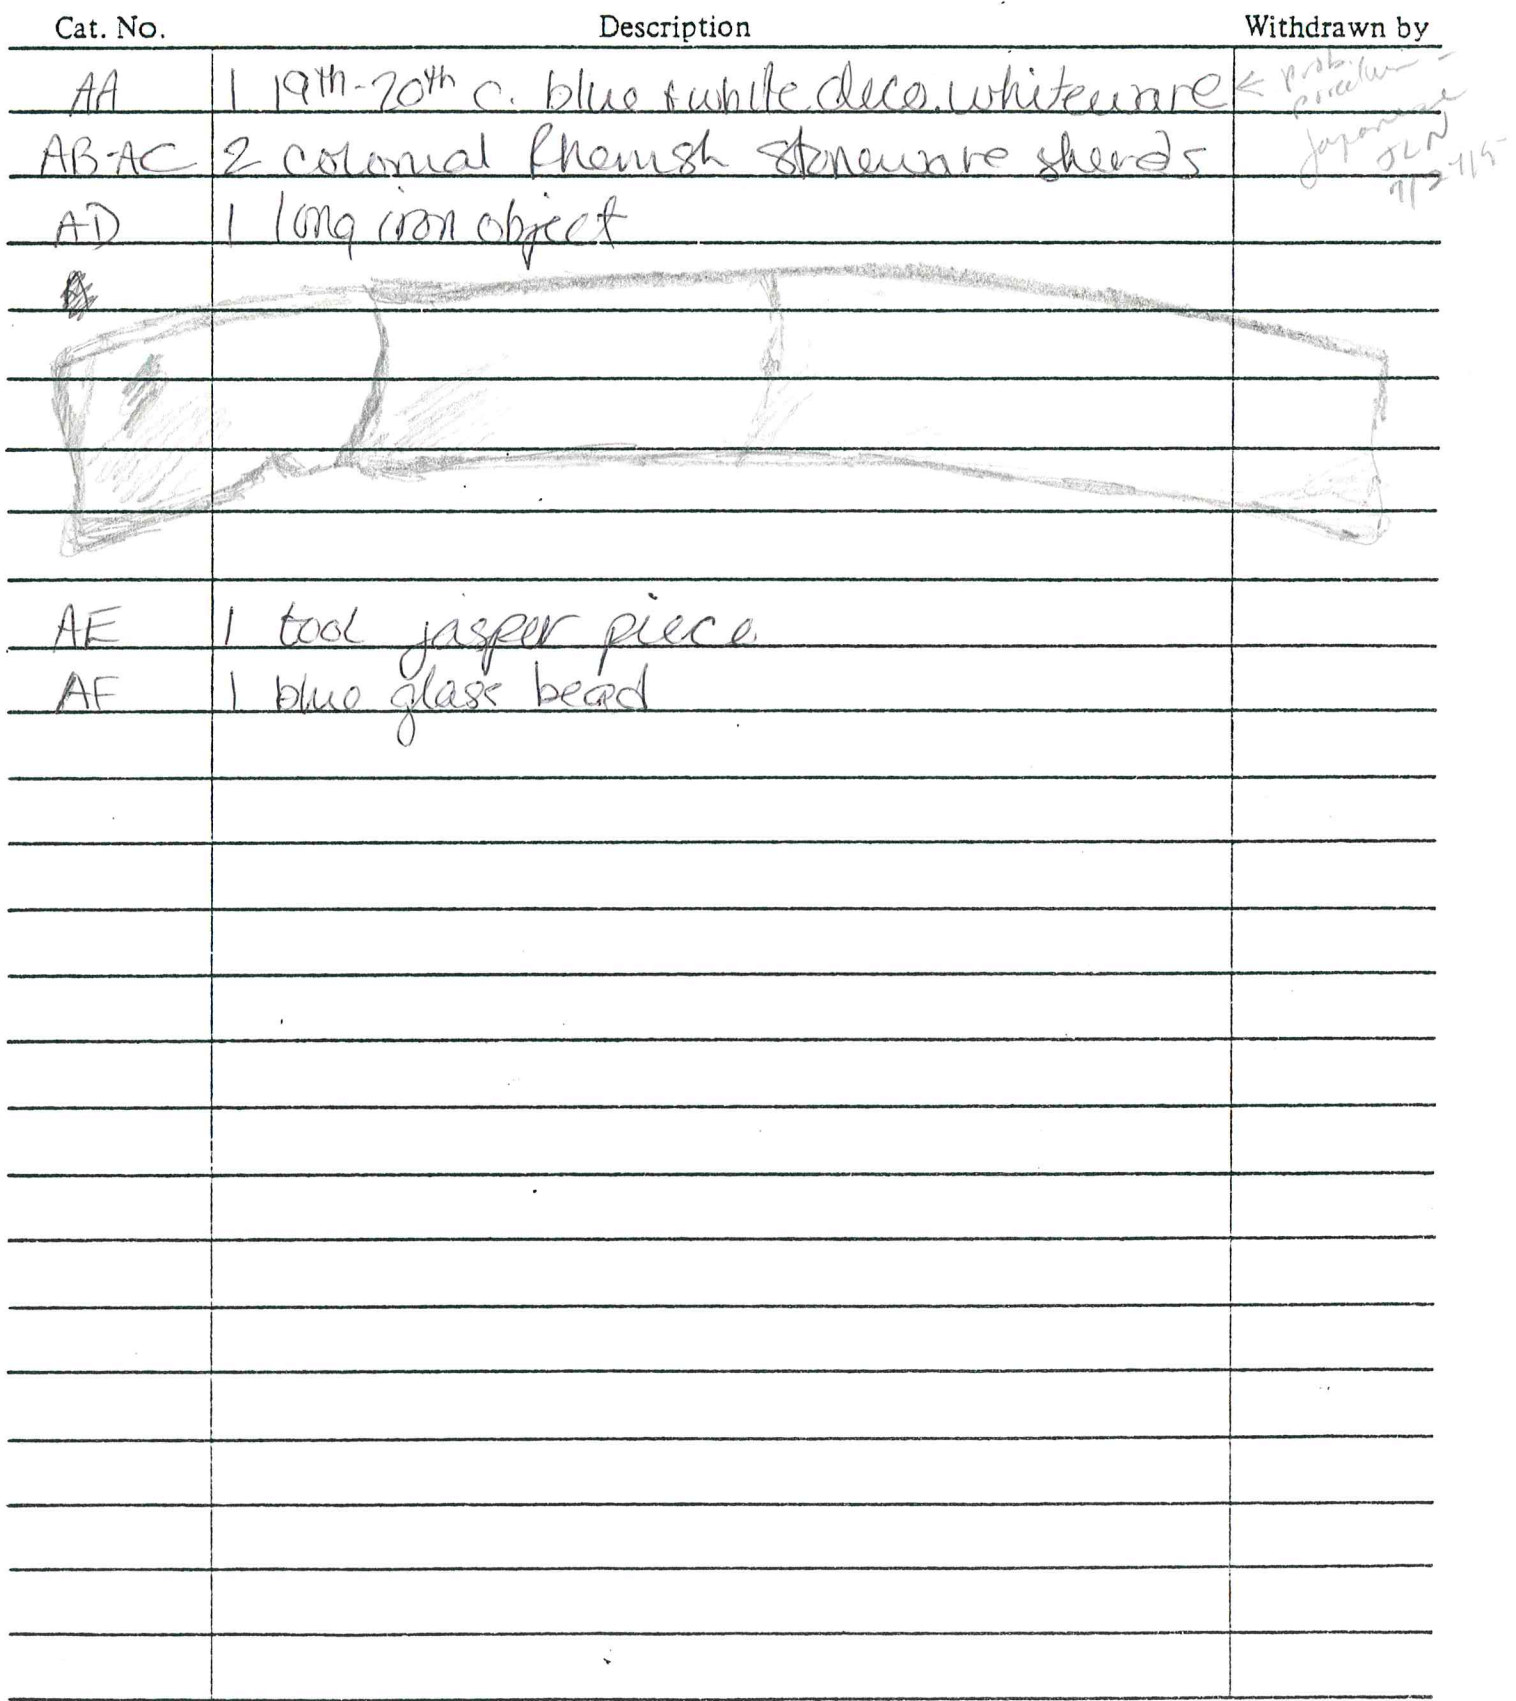 Cat. No. Description Withdrawn by
AA 1 19th-20th c. blue + white deco. whiteware ← prob.
porcelain -
Japanese
JLN
AB-AC 2 colonial Rhenish stoneware sherds
AD 1 long iron object
AE 1 tool jasper piece
AF 1 blue glass bead